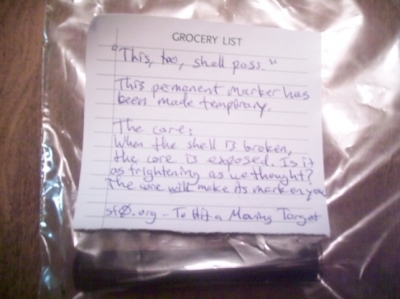 GROCERY LIST
"This, too, shell pass."
This permanent marker has
been made temporary.
The core:
When the shell is broken,
the core is exposed. Is it
as frightening as we thought?
The core will make its mark on you
sf0.org - To Hit a Moving Target